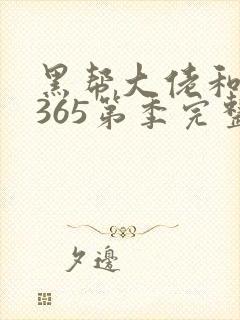 黑帮大佬和
365第季完整
夕邊